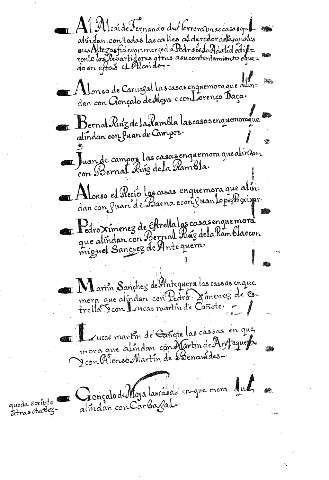 Al Alcai de Fernando de herrera unas casas que
alindan con todas las calles al derredor
sus Altezas
en ellas el Alcaide
Alonso de Caruajal las casas en que mora que alin
dan con Gonçalo de Moya y con Lorenço Daça
Bernal Ruiz de la Rambla las casas en que mora que
alindan con Juan de Campos
Juan de campos las casas en que mora que alindan
con Bernal Ruiz de la Rambla
Alonso el Recio las casas en que mora que alin
dan con Juan de Baena e con Juan Lopez
Pedro Ximenez de estrella las casas en que mora
que alindan con Bernal Ruiz de la Rambla e con
miguel Sanchez de Antequera
Martin Sanchez de Antequera las casas en que
mera que alindan con Pedro Ximenez de es
trella y con Lucas martin de Cañete
Lucas martin de Cañete las casas en que
mora que alindan con Martin de Antequera
y con Alonso Martin de Benauides
Gonçalo de Moya las casas en que mora que
alindan con Carbajal
queda scripto